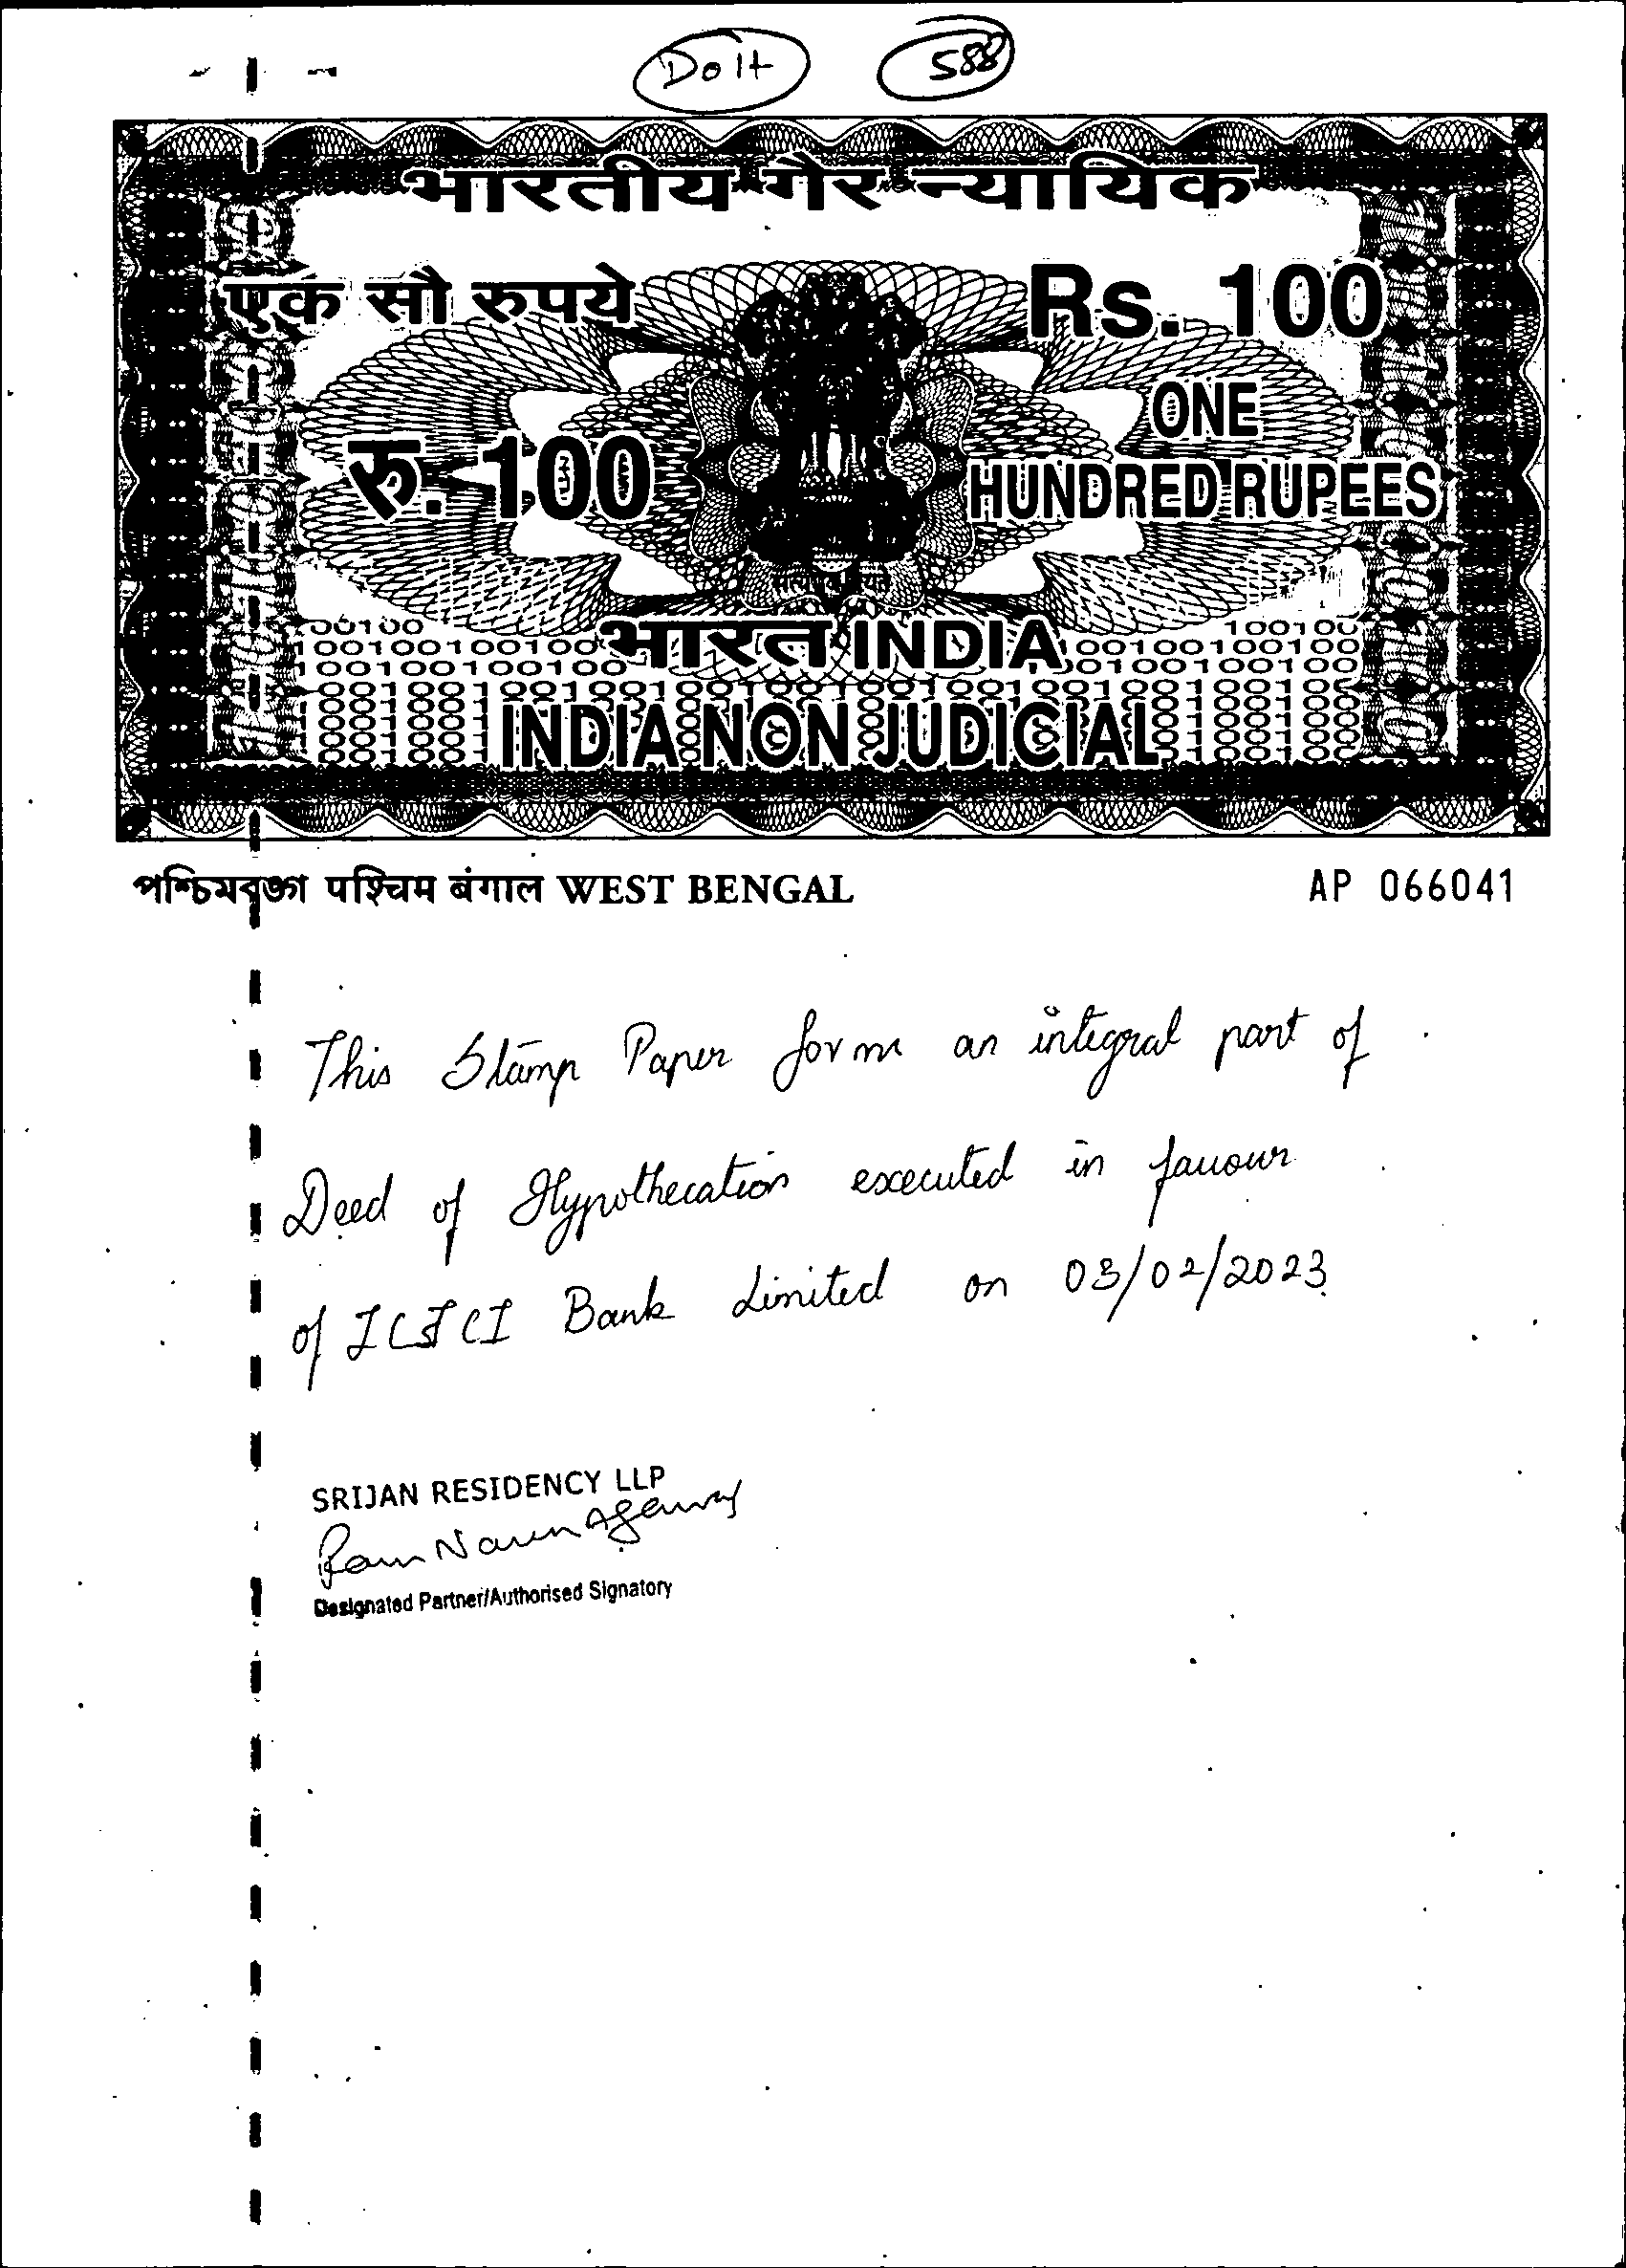 DoH 588
भारतीय गैर न्यायिक
एक सौ रुपये Rs. 100
ONE
रु. 100 HUNDRED RUPEES
सत्यमेव जयते
भारत INDIA
INDIA NON JUDICIAL
পশ্চিমবঙ্গ पश्चिम बंगाल WEST BENGAL AP 066041
This Stamp Paper form an integral part of
Deed of Hypothecation executed in favour
of ICICI Bank Limited on 03/02/2023
SRIJAN RESIDENCY LLP
Ram Naren Agarwal
Designated Partner/Authorised Signatory